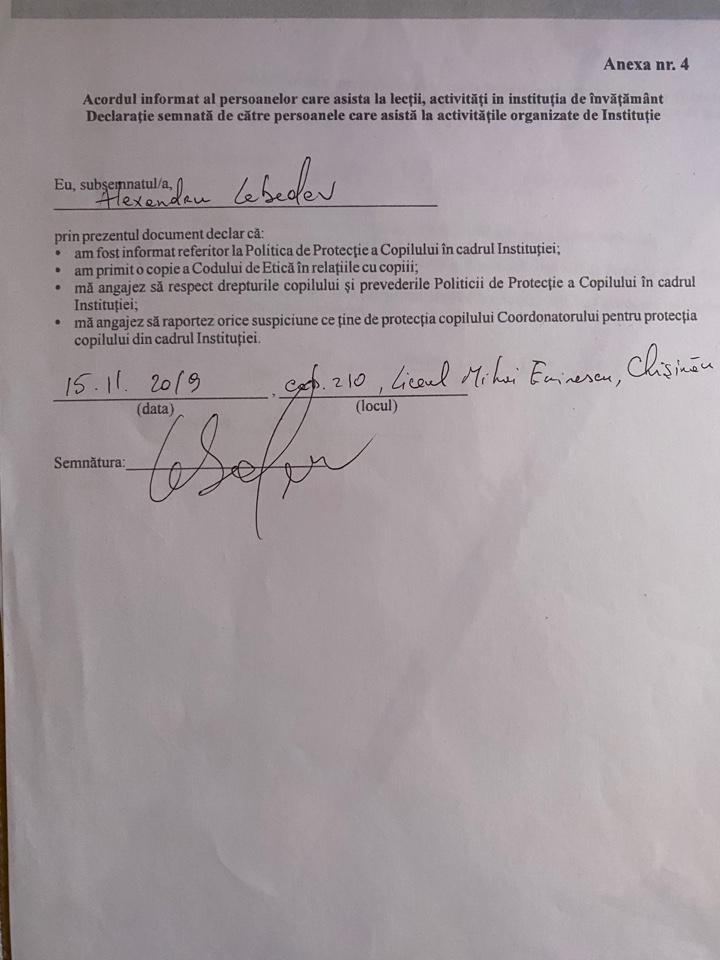 Anexa nr. 4
Acordul informat al persoanelor care asista la lecții, activități in instituția de învățământ
Declarație semnată de către persoanele care asistă la activitățile organizate de Instituție
Eu, subsemnatul/a, Alexandru Lebedev
prin prezentul document declar că:
• am fost informat referitor la Politica de Protecție a Copilului în cadrul Instituției;
• am primit o copie a Codului de Etică în relațiile cu copiii;
• mă angajez să respect drepturile copilului și prevederile Politicii de Protecție a Copilului în cadrul
Instituției;
• mă angajez să raportez orice suspiciune ce ține de protecția copilului Coordonatorului pentru protecția
copilului din cadrul Instituției.
15.11.2019, cab. 210, Liceul Mihai Eminescu, Chișinău
(data) (locul)
Semnătura: